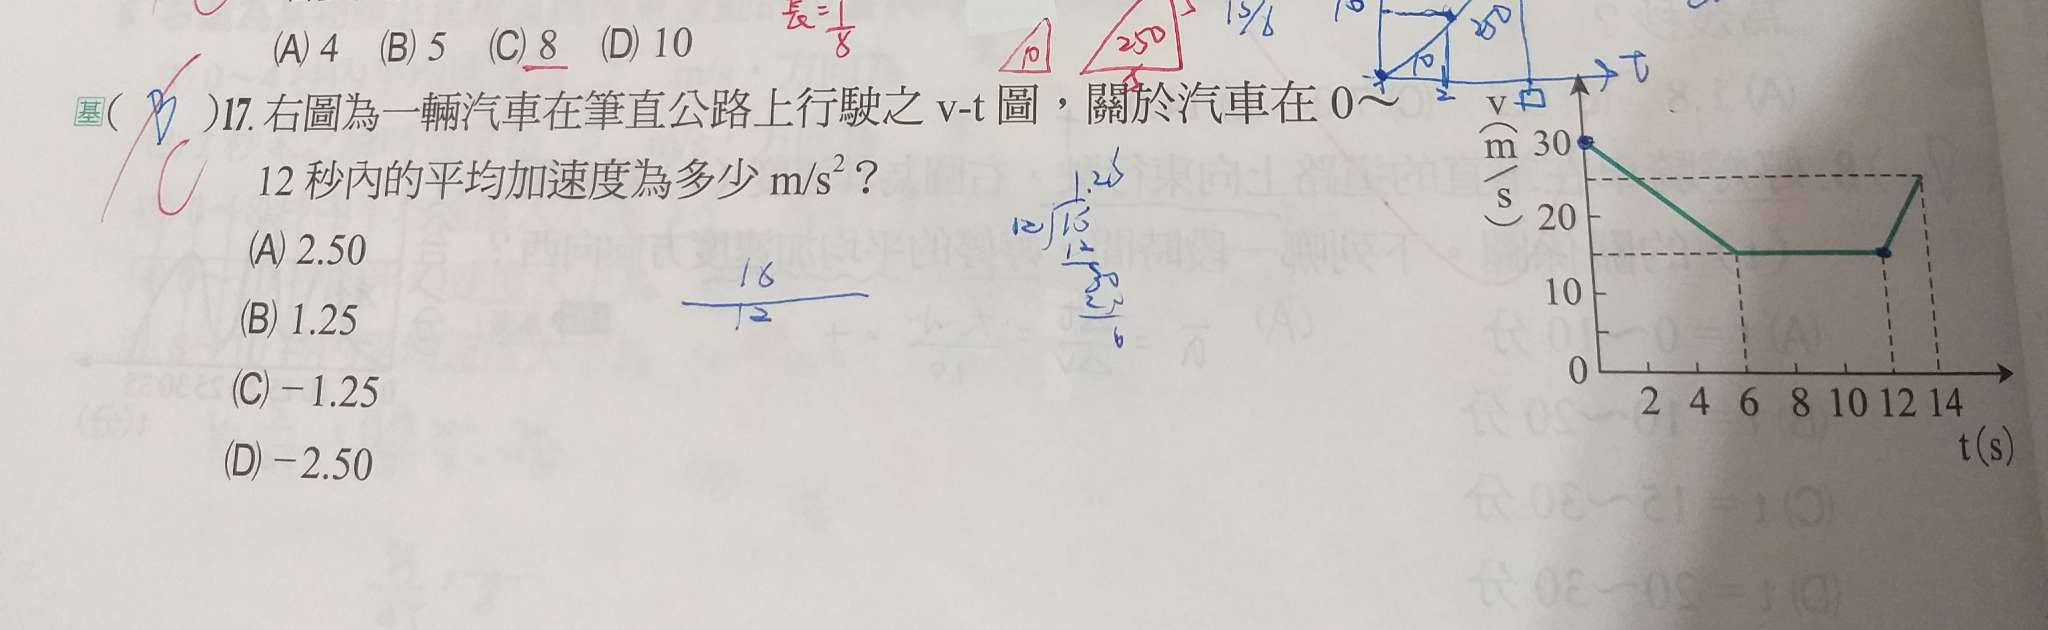 長=1/8
(A) 4 (B) 5 (C) 8 (D) 10
10
250
15/6
10
250
10
2
t
基( B )17. 右圖為一輛汽車在筆直公路上行駛之 v-t 圖，關於汽車在 0～
C
12 秒內的平均加速度為多少 m/s²？
(A) 2.50
(B) 1.25
(C) −1.25
(D) −2.50
1.25
12
15
12
30
6
12
v
(m/s)
30
20
10
0
2 4 6 8 10 12 14
t(s)